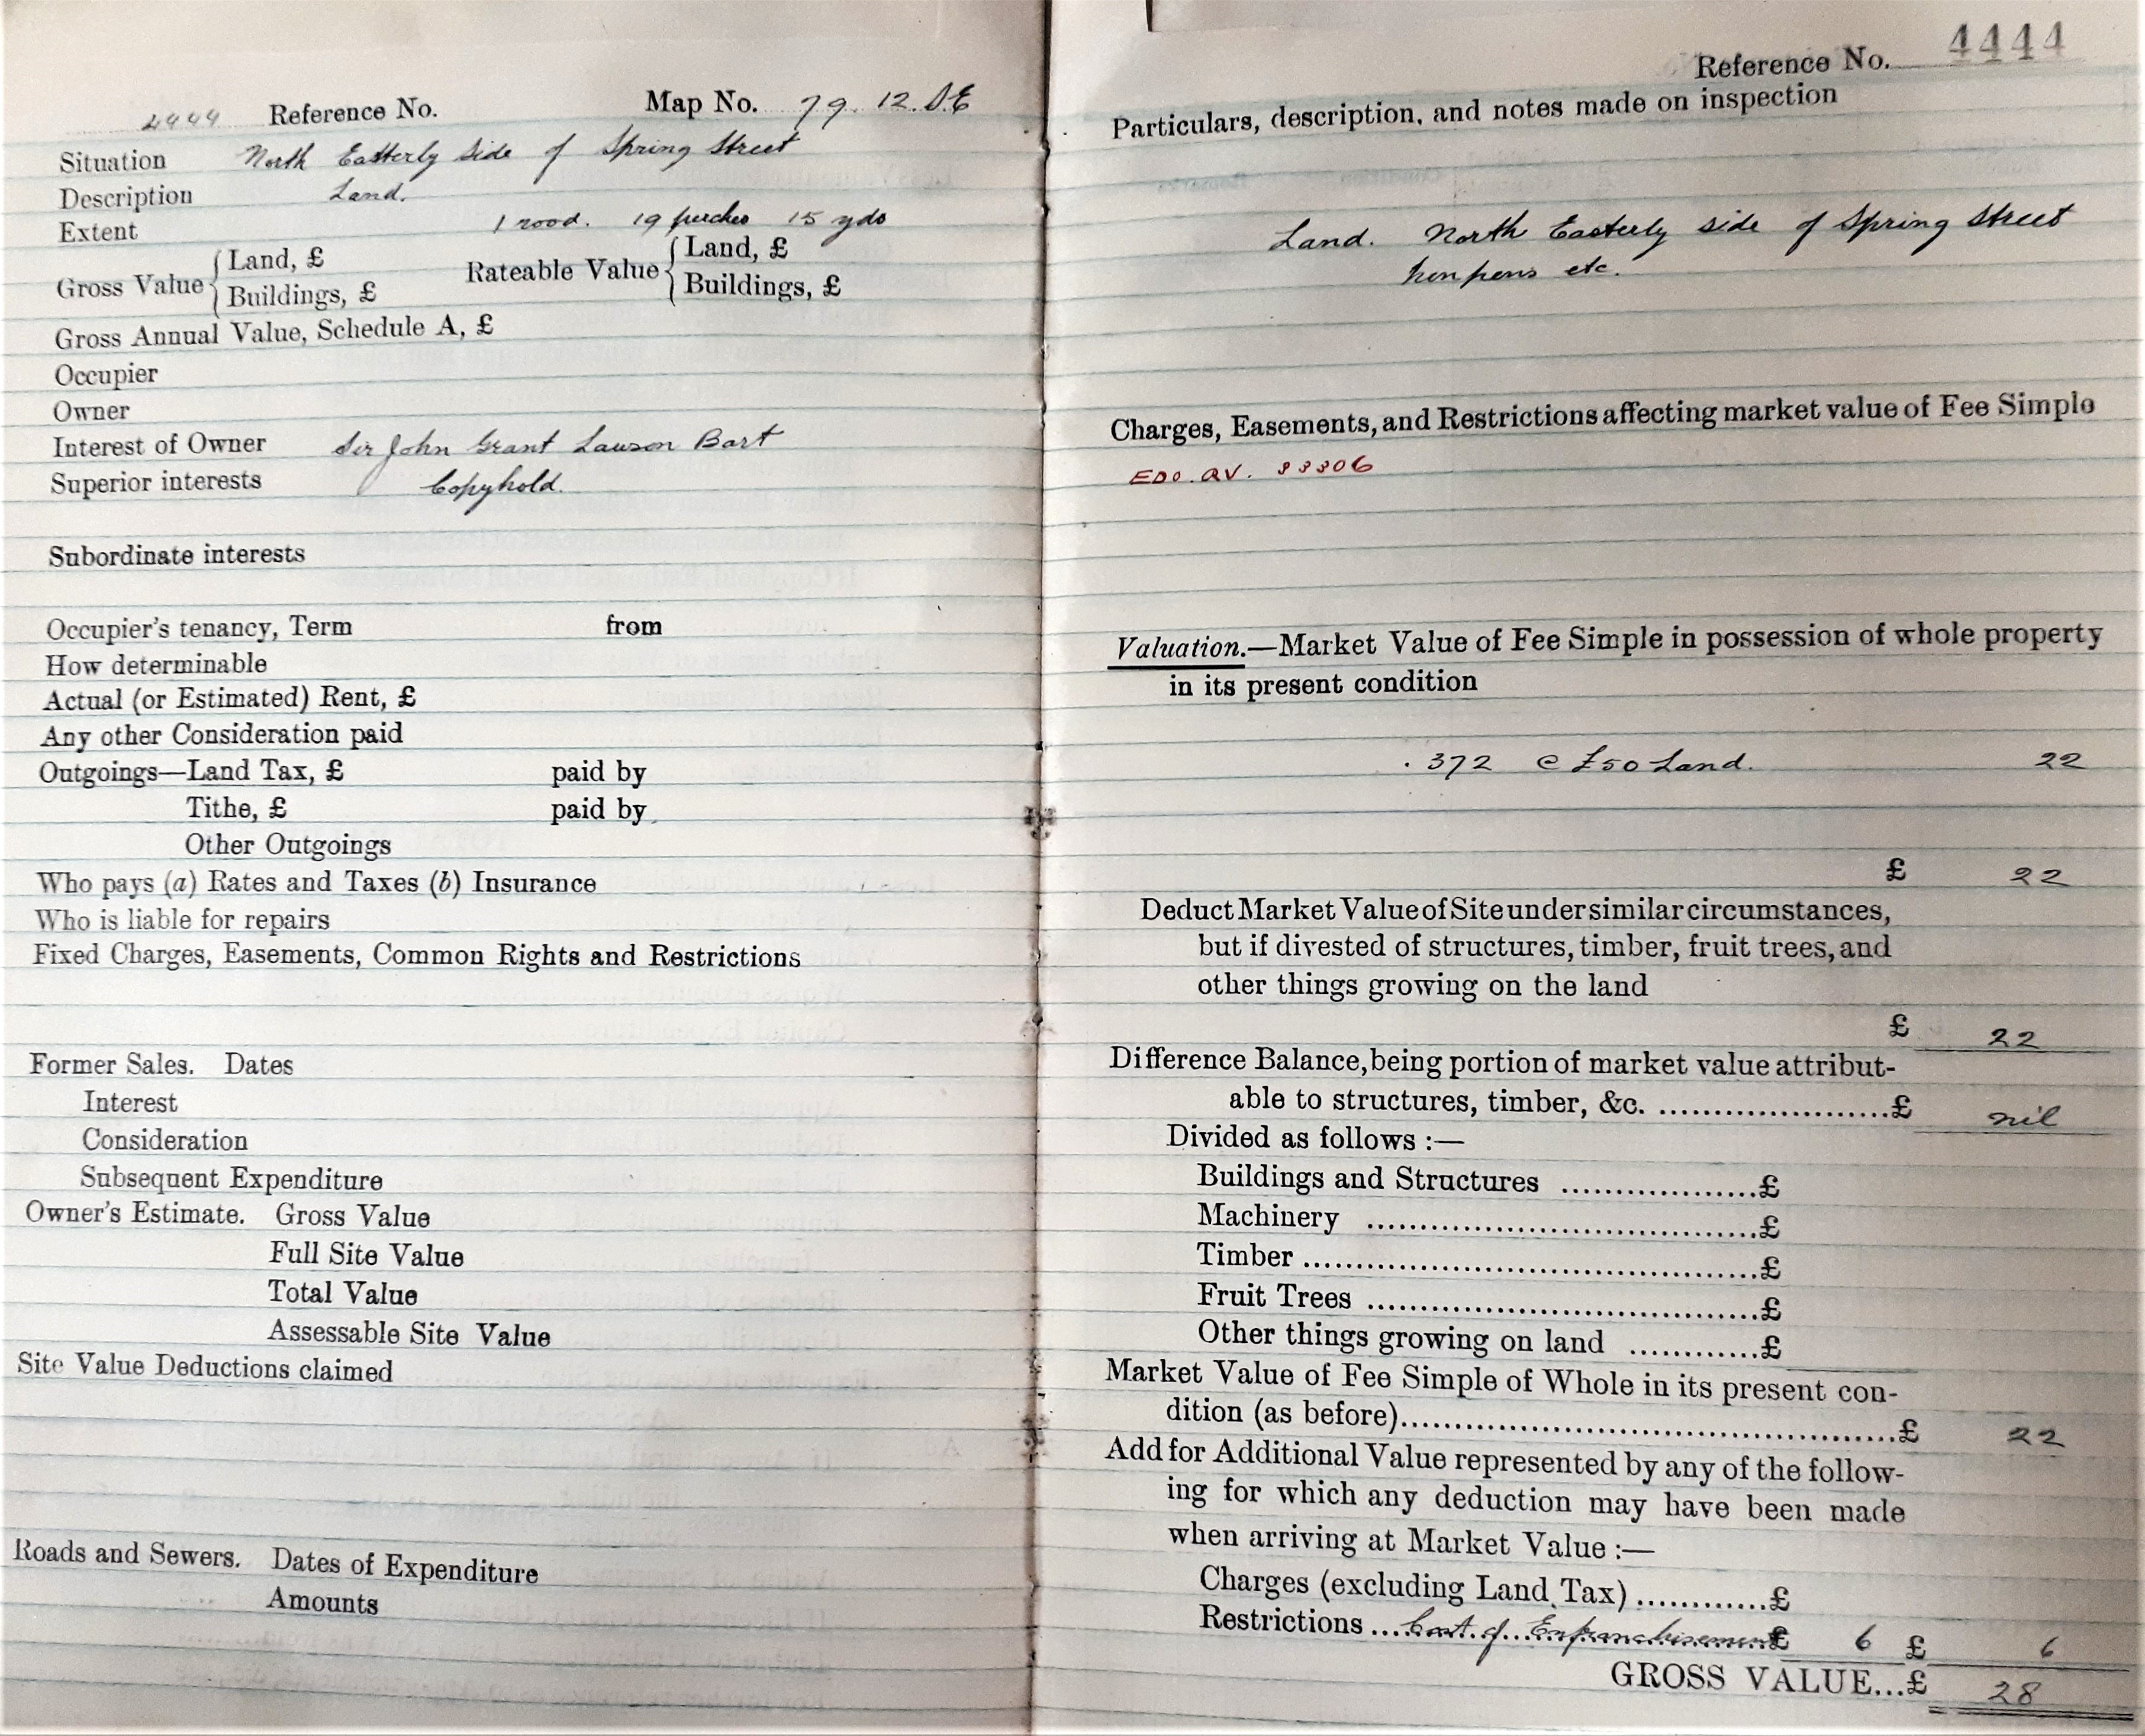 4444 Reference No. Map No. 79. 12. S.E
Situation North Easterly side of Spring Street
Description Land.
Extent 1 rood. 19 perches 15 yds
Gross Value { Land, £ Rateable Value { Land, £
Buildings, £ Buildings, £
Gross Annual Value, Schedule A, £
Occupier
Owner
Interest of Owner Sir John Grant Lawson Bart
Superior interests Copyhold.
Subordinate interests
Occupier's tenancy, Term from
How determinable
Actual (or Estimated) Rent, £
Any other Consideration paid
Outgoings—Land Tax, £ paid by
Tithe, £ paid by
Other Outgoings
Who pays (a) Rates and Taxes (b) Insurance
Who is liable for repairs
Fixed Charges, Easements, Common Rights and Restrictions
Former Sales. Dates
Interest
Consideration
Subsequent Expenditure
Owner's Estimate. Gross Value
Full Site Value
Total Value
Assessable Site Value
Site Value Deductions claimed
Roads and Sewers. Dates of Expenditure
Amounts
Reference No. 4444
Particulars, description, and notes made on inspection
Land. North Easterly side of Spring Street
hen pens etc.
Charges, Easements, and Restrictions affecting market value of Fee Simple
Valuation.—Market Value of Fee Simple in possession of whole property
in its present condition
.372 @ £50 Land. 22
£ 22
Deduct Market Value of Site under similar circumstances,
but if divested of structures, timber, fruit trees, and
other things growing on the land
£ 22
Difference Balance, being portion of market value attribut-
able to structures, timber, &c. ........................£ nil
Divided as follows :—
Buildings and Structures ...................£
Machinery .......................................£
Timber .............................................£
Fruit Trees .......................................£
Other things growing on land ............£
Market Value of Fee Simple of Whole in its present con-
dition (as before)..................................................£ 22
Add for Additional Value represented by any of the follow-
ing for which any deduction may have been made
when arriving at Market Value :—
Charges (excluding Land Tax) ............£
Restrictions ... Cost of Enfranchisement £ 6 £ 6
GROSS VALUE...£ 28